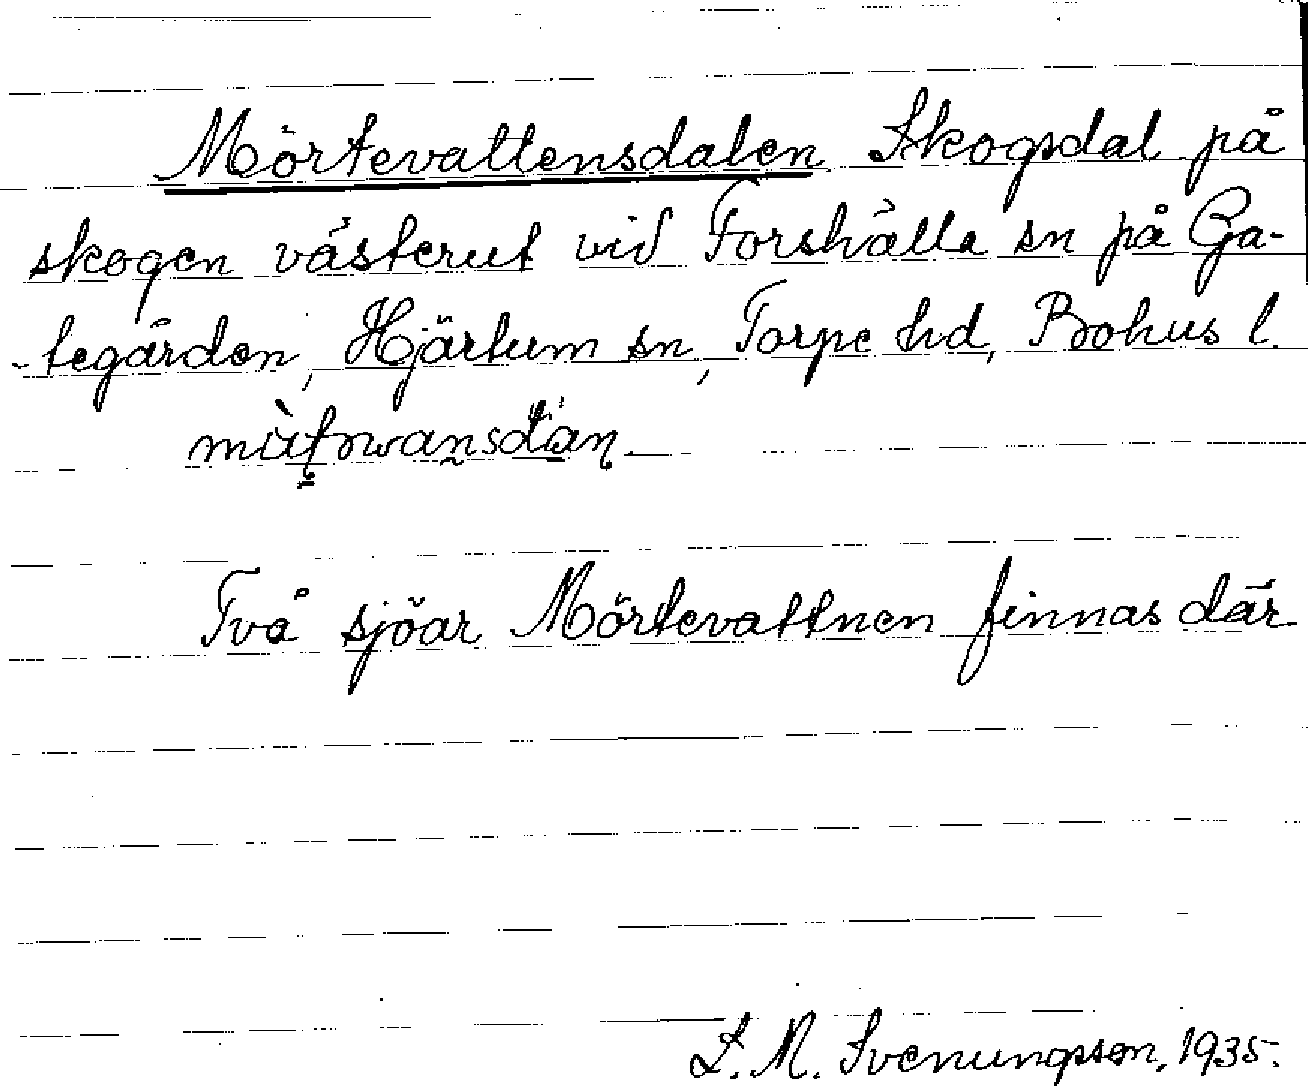 Mörtevattensdalen Skogsdal på
skogen västerut vid Forshälla sn på Ga-
-tegården, Hjärtum sn, Torpe hd, Bohus l.
Två sjöar Mörtevattnen finnas där
L. M. Svenungsson, 1935.